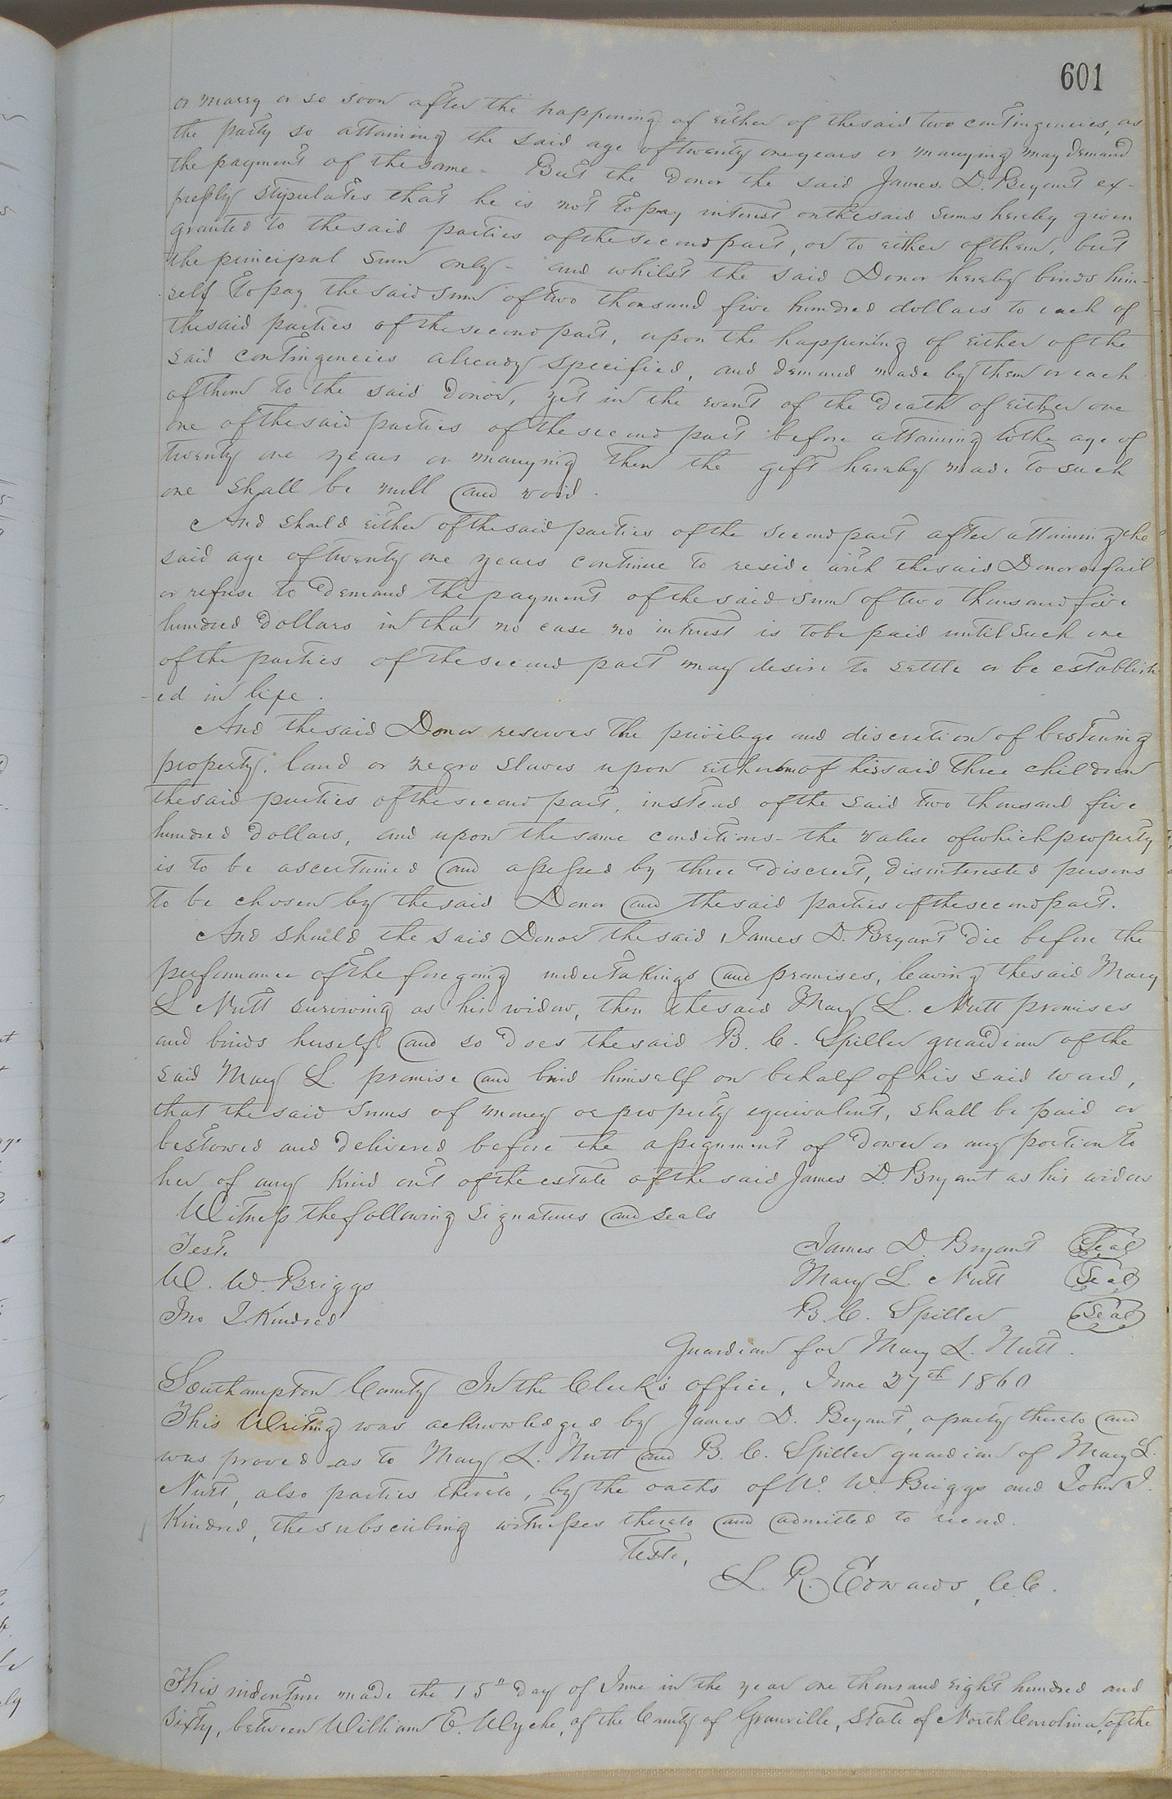 601
or marry or so soon after the happening of either of the said two contingencies, as
the party so attaining the said age of twenty one years or marrying may demand
the payment of the same. But the Donor the said James D. Bryant ex-
pressly stipulates that he is not to pay interest on the said sums hereby given
granted to the said parties of the second part, or to either of them but
the principal sum only - and whilst the said Donor hereby binds him-
self to pay the said sum of two thousand five hundred dollars to each of
the said parties of the second part, upon the happening of either of the
said contingencies already specified, and demand made by them or each
of them to the said Donor, yet in the event of the Death of either one
one of the said parties of the second part before attaining to the age of
twenty one years or marrying then the gift hereby made to such
one shall be null and void.
And should either of the said parties of the second part after attaining the
said age of twenty one years continue to reside with the said Donor or fail
or refuse to demand the payment of the said sum of two thousand five
hundred Dollars in that no case no interest is to be paid until such one
of the parties of the second part may desire to settle or be establish
-ed in life.
And the said Donor reserves the privilege and discretion of bestowing
property, land or negro slaves upon either of his said three children
the said parties of the second part, instead of the said two thousand five
hundred Dollars, and upon the same conditions - the value of which property
is to be ascertained and assessed by three Discreet, disinterested persons
to be chosen by the said Donor and the said parties of the second part.
And should the said Donor the said James D. Bryant die before the
performance of the foregoing undertakings and promises, leaving the said Mary
L Nutt surviving as his widow, then the said Mary L. Nutt promises
and binds herself and so does the said B. C. Spiller guardian of the
said Mary L. promise and bind himself on behalf of his said ward,
that the said sums of money or property equivalent, shall be paid or
bestowed and delivered before the assignment of Dower or any portion to
her of any kind out of the estate of the said James D. Bryant as his widow
Witness the following signatures and seals
Test. James D. Bryant Seal
W. W. Briggs Mary L. Nutt Seal
Jno J Kindred B. C. Spiller Seal
Guardian for Mary L. Nutt.
Southampton County In the Clerk's office, June 27th 1860
This Writing was acknowledged by James D. Bryant, a party thereto and
was proved as to Mary L. Nutt and B. C. Spiller guardian of Mary L.
Nutt, also parties thereto, by the oaths of W. W. Briggs and John J.
Kindred, the subscribing witnesses thereto and admitted to record.
Teste,
L. R. Edwards, C.C.
This indenture made the 15th day of June in the year one thousand eight hundred and
sixty, between William E. Wyche, of the County of Granville, State of North Carolina, of the